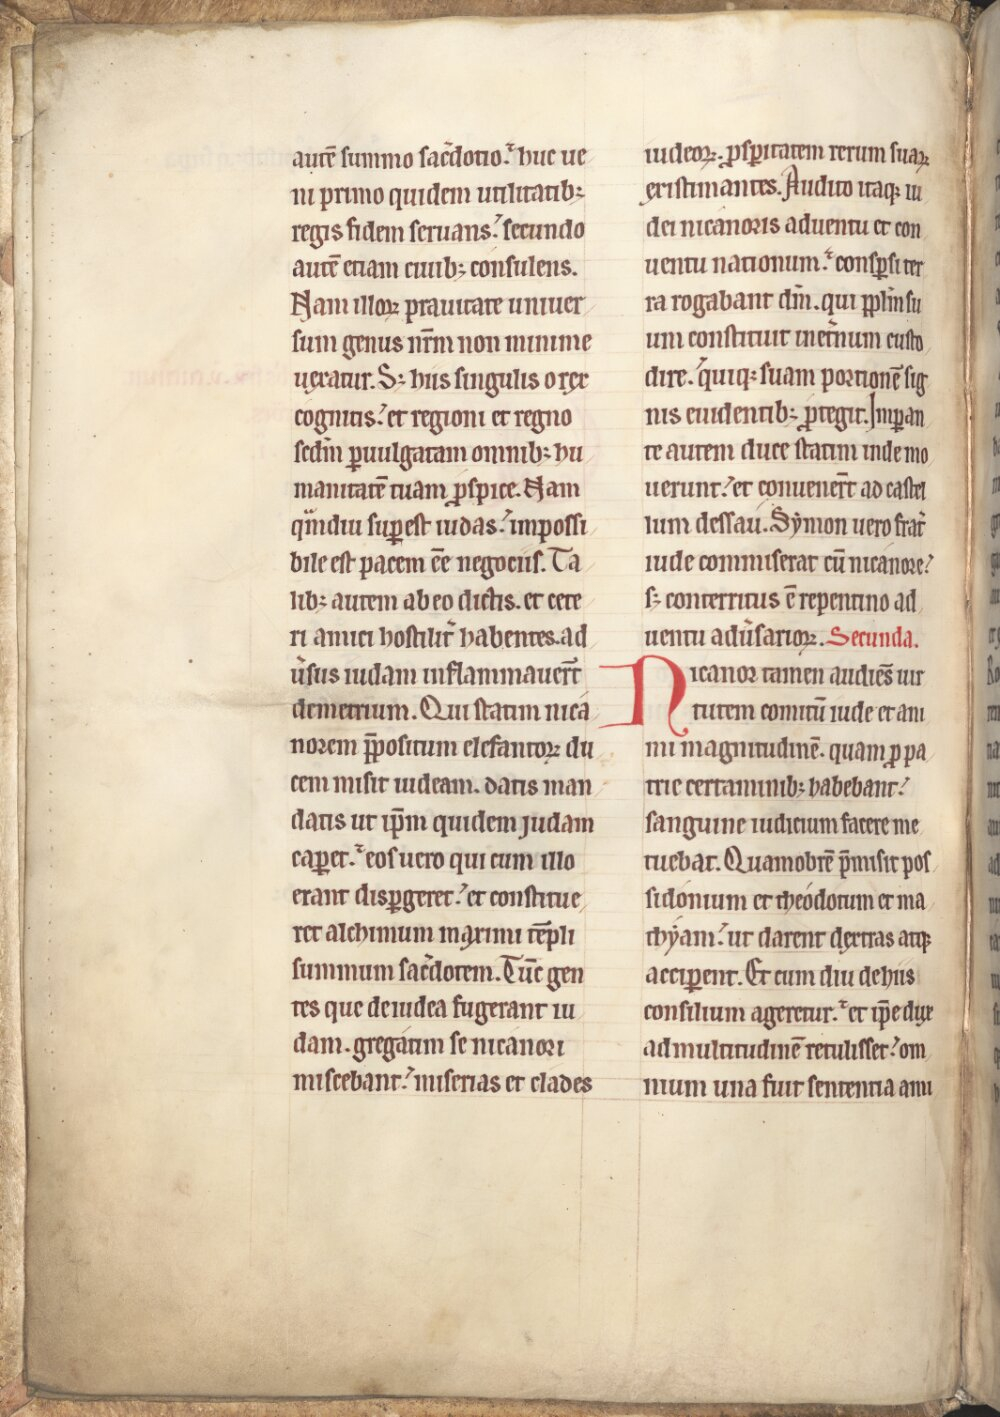 autē summo sac̄dotio. huc ue
ni primo quidem utilitatibꝫ
regis fidem seruans. secundo
autē etiam ciuibꝫ consulens.
Nam illoꝝ prauitate uniuer
sum genus nr̄m non minime
uexatur. Sꝫ hiis singulis o rex
cognitis. et regioni et regno
scdm̄ ꝑuulgatam omnibꝫ hu
manitatē tuam ꝓspice. Nam
qm̄diu suꝑest iudas. impossi
bile est pacem ee̅ negociis. Ta
libꝫ autem ab eo dictis. et cete
ri amici hostilit̄ habentes. ad
ūsus iudam inflammauer̄t
demetrium. Qui statim nica
norem p̄positum elefantoꝝ du
cem misit iudeam. datis man
datis ut ip̄m quidem judam
caꝑet. eos uero qui cum illo
erant disꝑgeret. et constitue
ret alchimum maximi tēpli
summum sac̄dotem. Tūc gen
tes que de iudea fugerant iu
dam. gregatim se nicanori
miscebant. miserias et clades
iudeoꝝ. ꝓsꝑitatem rerum suaꝝ
existimantes. Audito itaqꝫ iu
dei nicanoris aduentu et con
uentu nationum. consꝑsi ter
ra rogabant dm̄. qui pplm̄ su
um constituit inet̄num custo
dire. quiqꝫ suam portionē sig
nis euidentibꝫ ꝓtegit. Imꝑan
te autem duce statim inde mo
uerunt. et conuener̄t ad castel
lum dessau. Symon uero frat̄
iude commiserat cū nicanore.
sꝫ conterritus ē repentino ad
uentu adūsarioꝝ. Secunda.
Nicanor tamen audiēs uir
tutem comitū iude et ani
mi magnitudinē. quam ꝓ pa
trie certaminibꝫ habebant.
sanguine iudicium facere me
tuebat. Quamobrē p̄misit pos
sidonium et theodotum et ma
thyam. ut darent dextras atqꝫ
acciꝑent. Et cum diu de hiis
consilium ageretur. et ip̄e dux
ad multitudinē retulisset. om
nium una fuit sententia ami